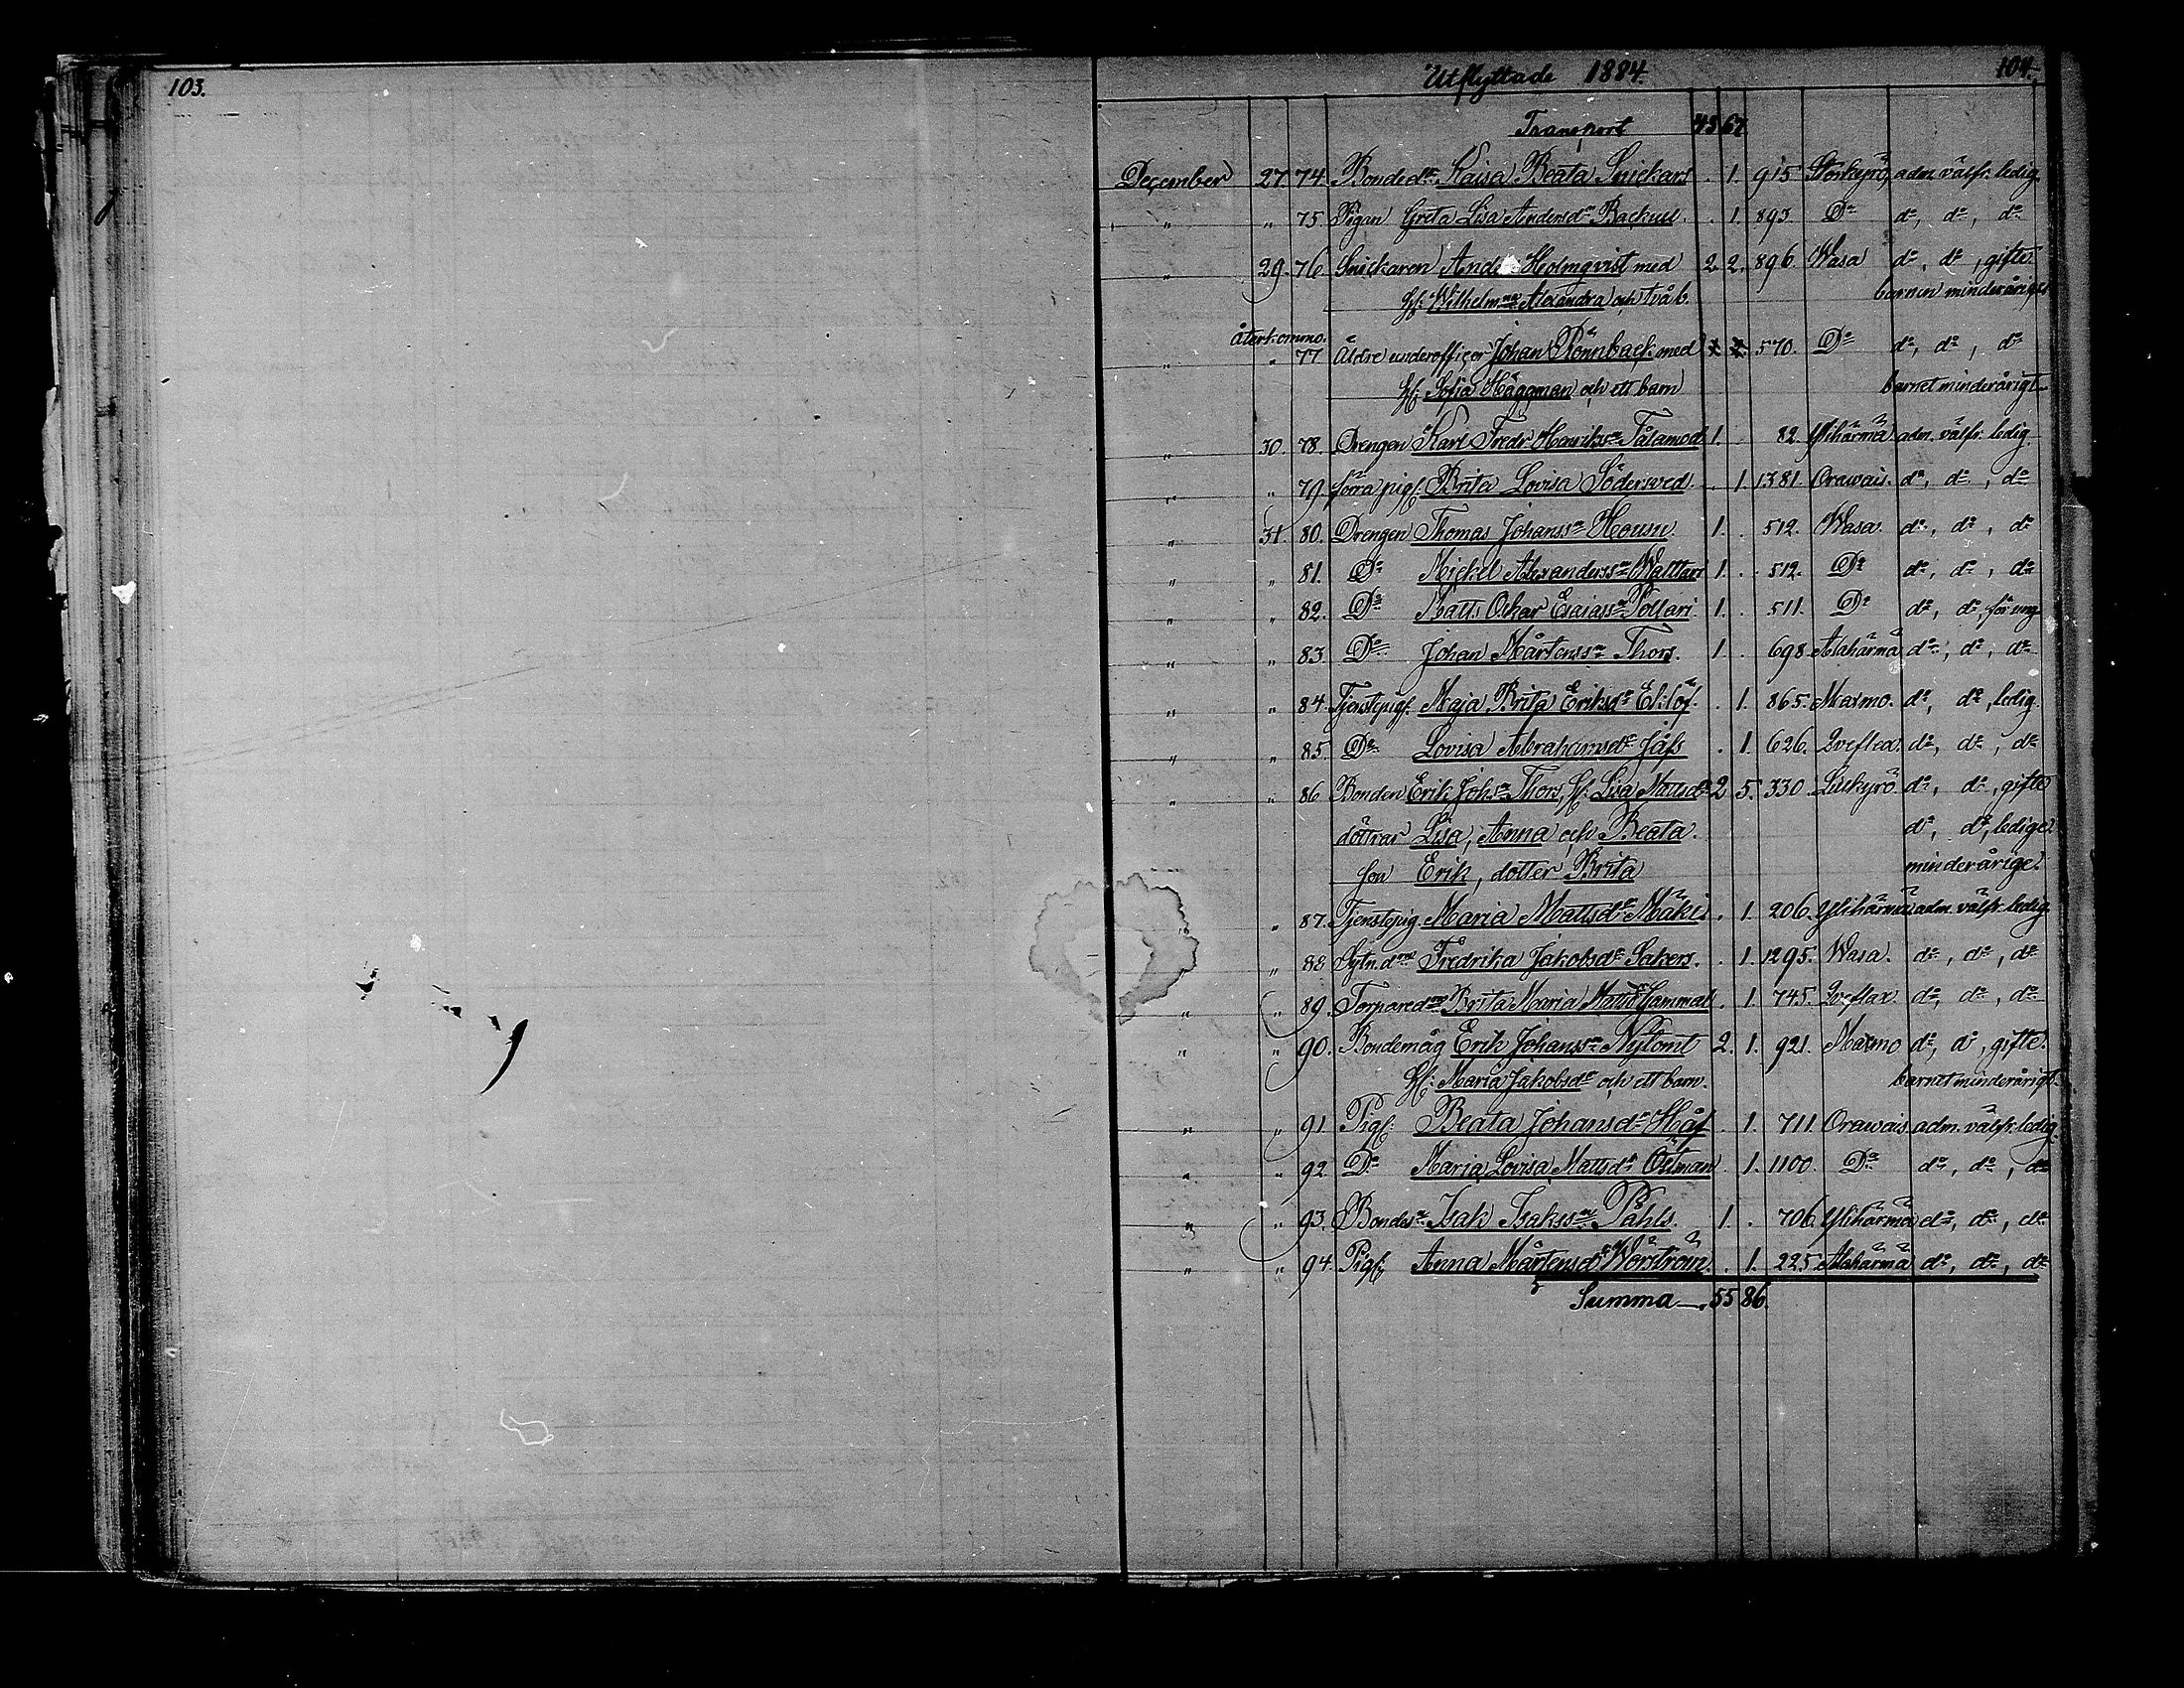 103.
Utflyttade 1884. 104.
Transport 43 67
December 27. 74. Bondedr. Kaisa Beata Snickars . 1. 915. Storkyrö, adm. välfr. ledig.
" " 75. Pigan Greta Lisa Andersdr Backull . 1. 893. Do do, do, do
" 29. 76. Snickaren Anders Holmqvist med 2. 2. 896. Wasa do, do, gifte.
H: Wilhelmna Alexandra och två b. barnen minderåriga
återkommo.
" " 77. Äldre underofficer Johan Rönnback med 570. Do do, do, do
H: Sofia Häggman och ett barn barnet minderårigt
" 30. 78. Drengen Karl Fredr Henriksn Tålamod 1. . 82. Ylihärmä adm. välfr. ledig
" " 79. förra pigf. Brita Lovisa Södersved . 1. 1381. Orawais. do, do, do
" 31. 80. Drengen Thomas Johanssn 1. . 512. Wasa. do, do, do
" " 81. Do Mickel Alexanderssn Wálttari 1. . 512. Do do, do, do
" " 82. Do Matts Oskar Esaiassn Pollari 1. . 511. Do do, do, för ung
" " 83. Do Johan Mårtenssn Thors. 1. . 698. Alahärmä do, do, do
" " 84. Tjenstepigf. Maja Brita Eriksdr Elilöf. . 1. 865. Maxmo. do, do, ledig.
" " 85. Do Lovisa Abrahamsdr Jåfs . 1. 626. Qveflax. do, do, do
" " 86 Bonden Erik Johsn Thors, H: Lisa Mattsdr 2 5. 330. Lillkyrö do, do, gifte
döttrar Lisa, Anna och Beata. do, do, ledige.
son Erik, dotter Brita minderårige.
" " 87. Tjenstepig Maria Mattsdr Mäki . 1. 206. Ylihärmä adm. välfr. ledig
" " 88 Sytn.dm Fredrika Jakobsdr Sakers. . 1. 1295. Wasa. do, do, do
" " 89. Torparedr Brita Maria Mattsdr Gammal . 1. 745. Qveflax. do, do, do
" " 90. Bondemåg Erik Johanssn Nytomt 2. 1. 921. Maxmo do, do, gifte.
H: Maria Jakobsdr och ett barn. barnet minderårigt.
" " 91 Pigf: Beata Johansdr Håf . 1. 711. Orawais. adm. välfr. ledig.
" " 92. Do Maria Lovisa Mattsdr Östman . 1. 1100. Do do, do, do
" " 93. Bondesn Isak Isakssn Påhls. 1. . 706. Ylihärmä do, do, do
" " 94. Pigf: Anna Mårtensdr Worström. . 1. 225. Alahärmä do, do, do
Summa 55 86.